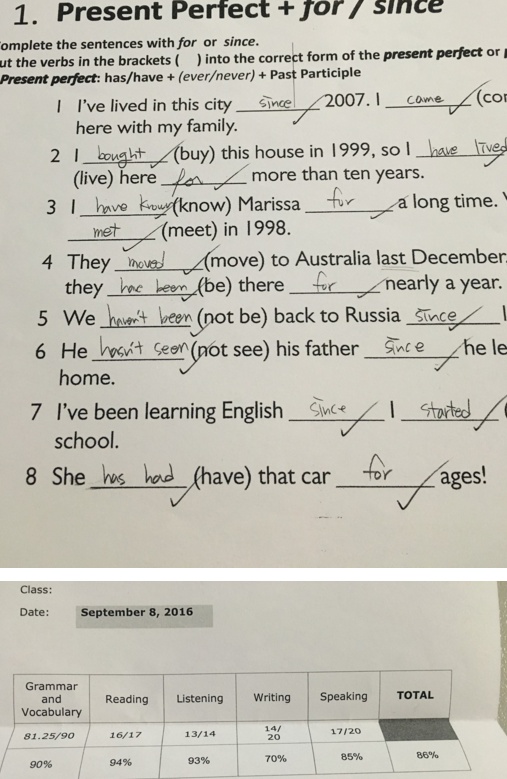 1. Present Perfect + for / since
omplete the sentences with for or since.
ut the verbs in the brackets ( ) into the correct form of the present perfect or
Present perfect: has/have + (ever/never) + Past Participle
1 I've lived in this city since 2007. I came (co
here with my family.
2 I bought (buy) this house in 1999, so I have lived
(live) here for more than ten years.
3 I have know (know) Marissa for a long time.
met (meet) in 1998.
4 They moved (move) to Australia last December
they been (be) there for nearly a year.
5 We haven't been (not be) back to Russia since I
6 He hasn't seen (not see) his father since he le
home.
7 I've been learning English since I started (
school.
8 She has had (have) that car for ages!
Class:
Date: September 8, 2016
Grammar and Vocabulary Reading Listening Writing Speaking TOTAL
81.25/90 16/17 13/14 14/20 17/20
90% 94% 93% 70% 85% 86%